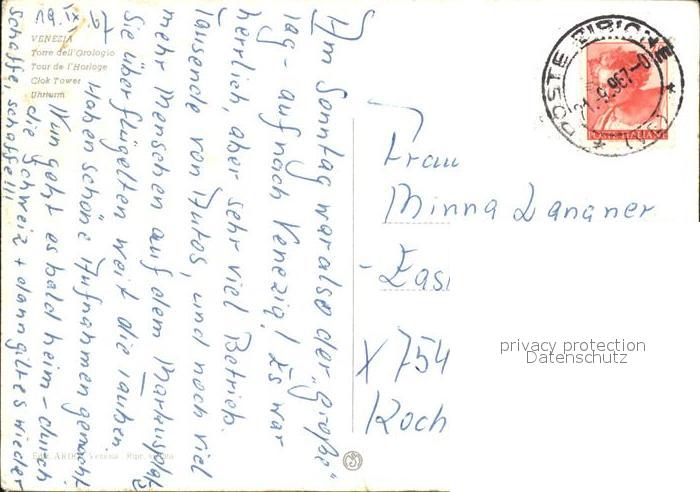 19.IX.67
VENEZIA
Torre dell'Orologio
Tour de l'Horloge
Clok Tower
Uhrturm
Am Sonntag war also der „große"
Tag - auf nach Venezig! Es war
herrlich, aber sehr viel Betrieb.
Tausende von Autos, und noch viel
mehr Menschen auf dem Markusplatz
Sie überflügelten weit die Tauben
Haben schöne Aufnahmen gemacht.
Nun geht es bald heim - durch
die Schweiz + dann gilt es wieder
schaffe, schaffe!!!
Edit. ARDO Venezia Ripr.
POSTE ITALIANE
POSTE BIBIONE
21.9.967-0
(VE)
Frau
Minna Lananer
- Easi
X 754
Koch
privacy protection
Datenschutz